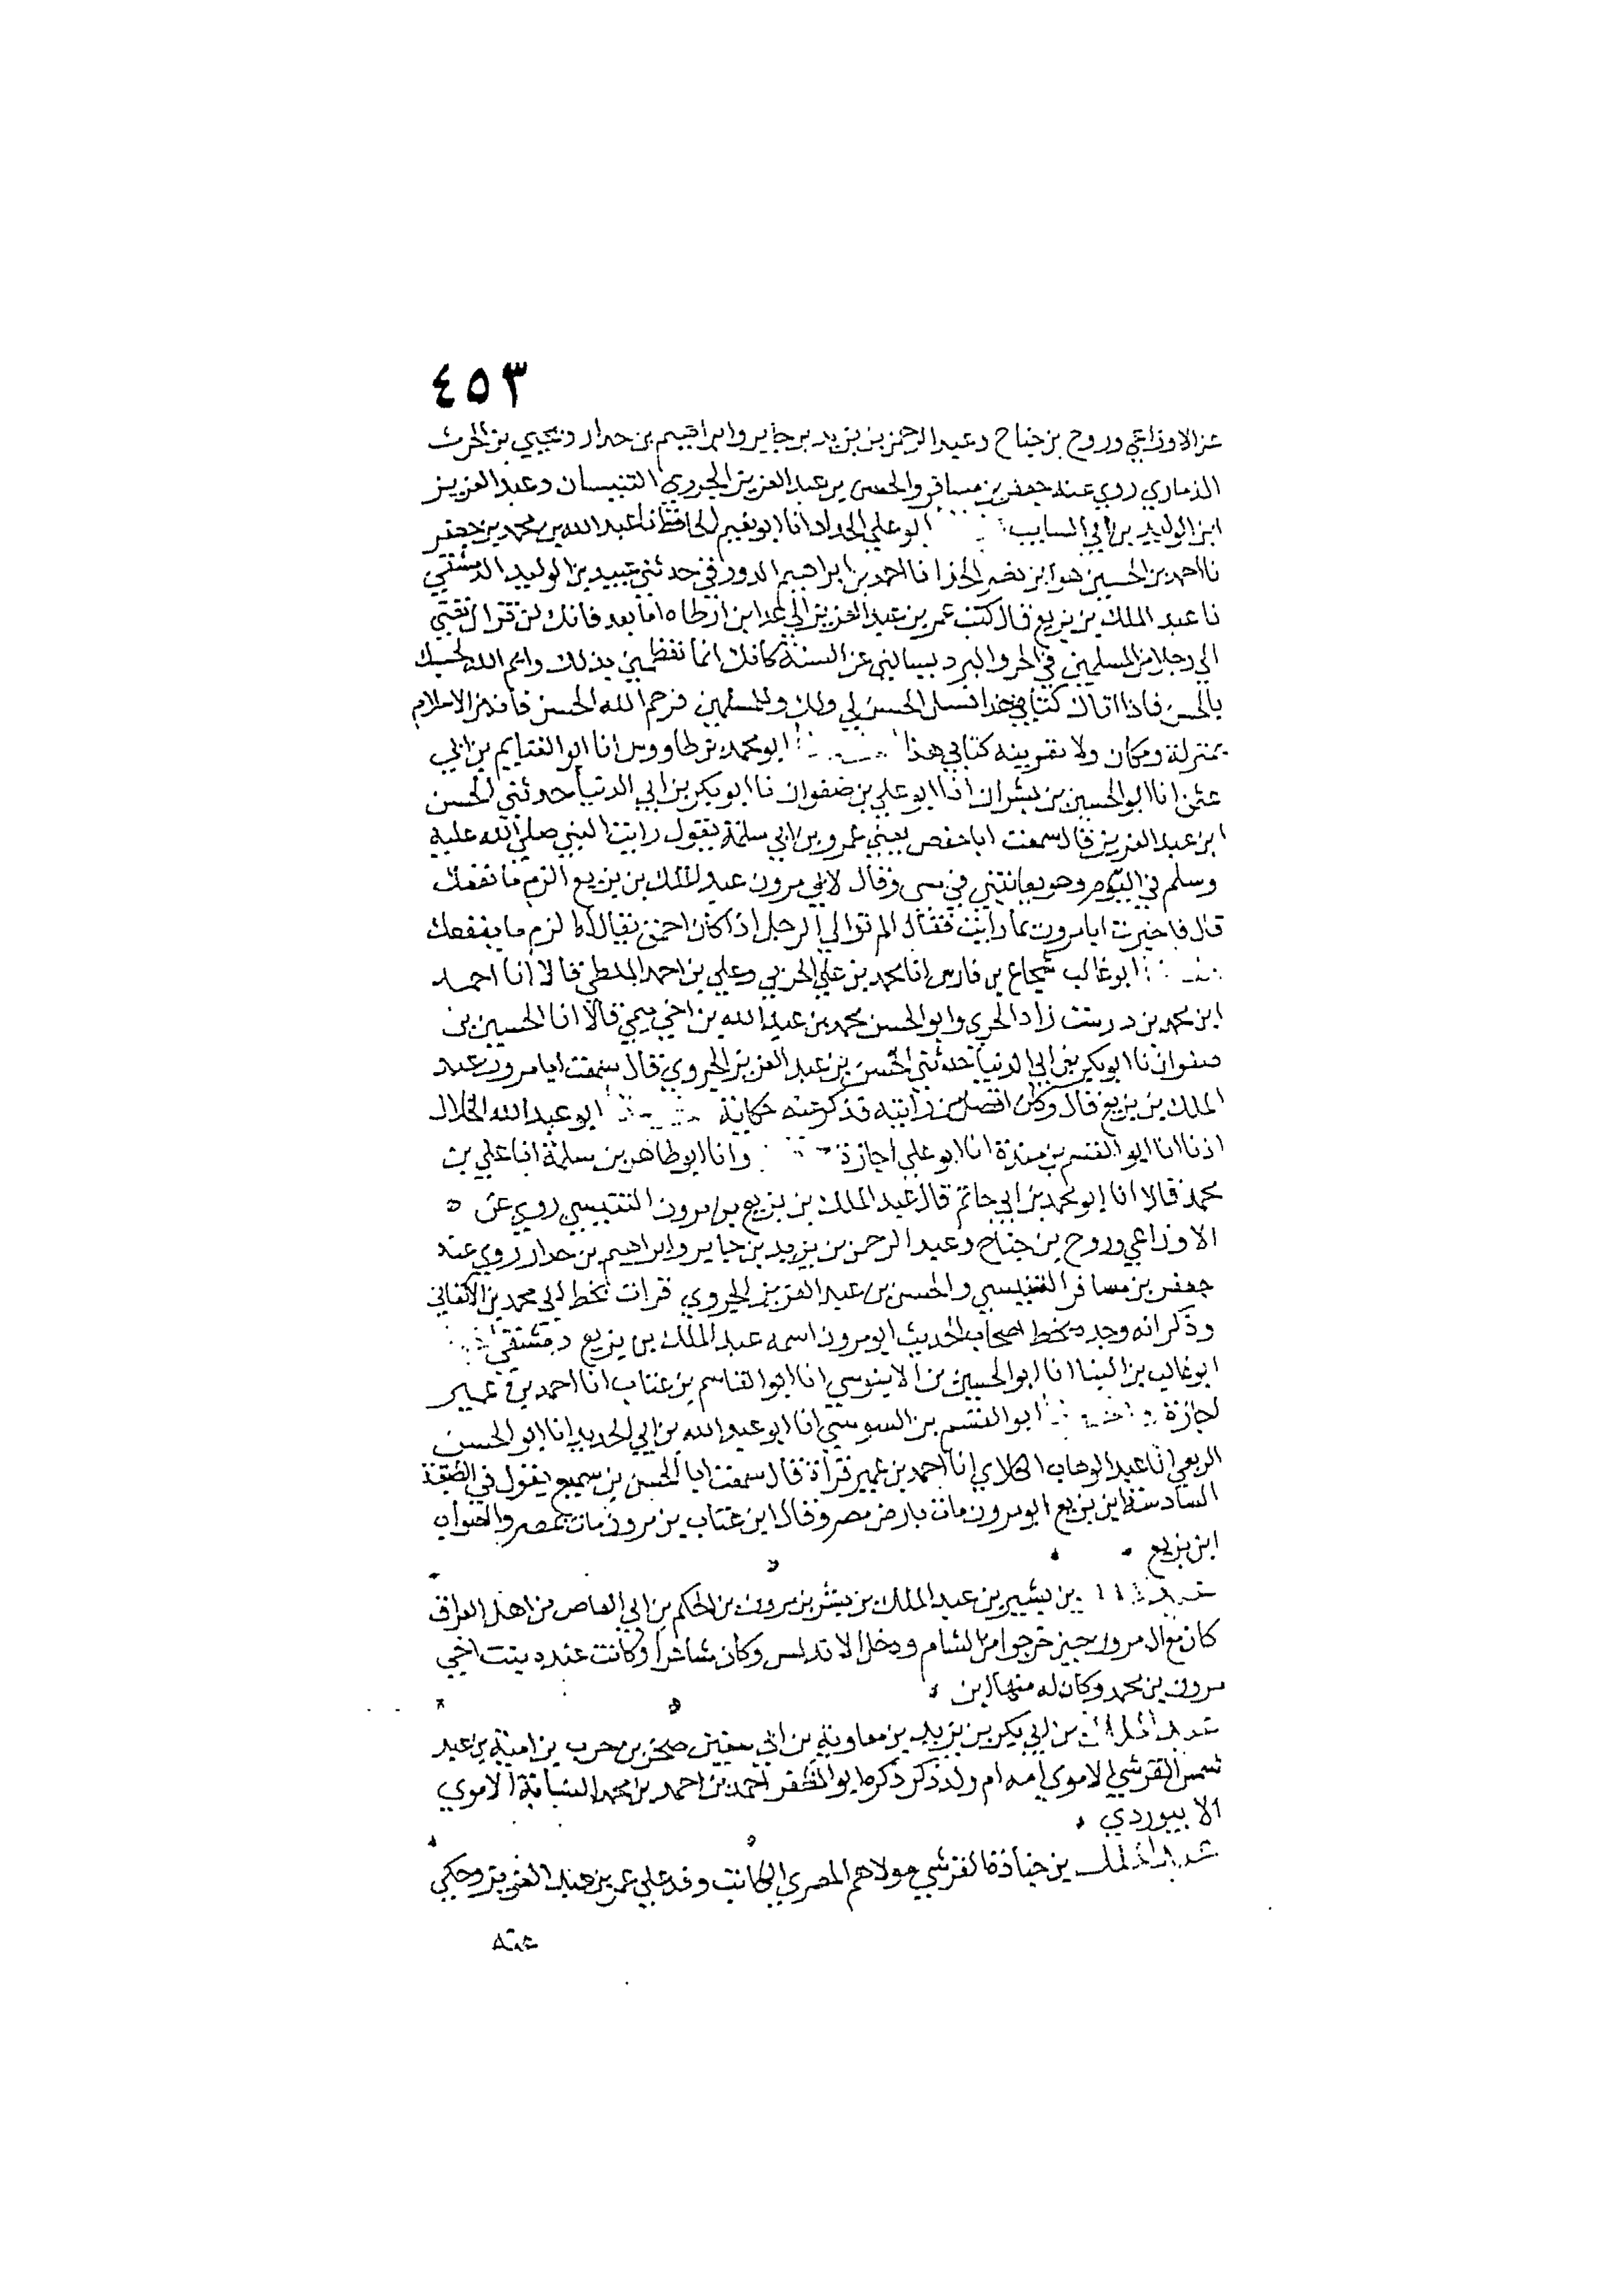 ٤٥٣
عن الاوزاعي وروح بن جناح وعبد الرحمن بن يزيد بن جابر وابراهيم بن جدار ويحيى بن الحرث
الذماري روي عنه جعفر بن مسافر والحسن بن عبد العزيز الجروي التنيسيان وعبد العزيز
ابن الوليد بن ابي السايب ابو علي الحداد انا ابو نعيم الحافظ نا عبد الله بن محمد بن جعفر
نا احمد بن الحسين هو ابن نصر الحذا نا احمد بن ابراهيم الدورقي حدثني عبيد بن الوليد الدمشقي
نا عبد الملك بن بزيع قال كتب عمر بن عبد العزيز الي عدي ابن ارطاه اما بعد فانك لن تزال تعني
الي رجلا من المسلمين في الحر والبرد يسالني عن السنة كانك انما تعظمني بذلك وايم الله لحسبك
بالحسن فاذا اتاك كتابي هذا فسل الحسن لي ولك وللمسلمين فرحم الله الحسن فانه من الاسلام
بمنزلة ومكان ولا تقرينه كتابي هذا ابو محمد بن طاووس انا ابو الغنايم بن ابي
عثمن انا ابو الحسين بن بشران انا ابو علي بن صفوان نا ابو بكر بن ابي الدنيا حدثني الحسن
ابن عبد العزيز قال سمعت ابا حفص يعني عمرو بن ابي سلمة يقول رايت النبي صلى الله عليه
وسلم في النوم وهو يعاتبني في شي وقال لابي مرون عبد الملك بن بزيع الزم ما نفعك
قال فاخبرت ابا مرون بما رايت فقال الم تر الي الرجل اذا كان احمق يقال له الزم ما ينفعك
ابو غالب شجاع بن فارس انا محمد بن علي الحربي وعلي بن احمد الملطي قالا انا احمد
ابن محمد بن درست زاد الحربي وابو الحسن محمد بن عبد الله بن اخي ميمي قالا انا الحسين بن
صفوان نا ابو بكر بن ابي الدنيا حدثني الحسن بن عبد العزيز الجروي قال سمعت ابا مرون عبد
الملك بن بزيع قال وكان افضل من رايته فذكر عنه حكاية ابو عبد الله الخلال
اذنا انا ابو القسم بن مندة انا ابو علي اجازة وانا ابو طاهر بن سلمة انا علي بن
محمد قالا انا ابو محمد بن ابي حاتم قال عبد الملك بن بزيع بن مرون التنيسي روي عن
الاوزاعي وروح بن جناح وعبد الرحمن بن يزيد بن جابر وابراهيم بن جدار روي عنه
جعفر بن مسافر التنيسي والحسن بن عبد العزيز الجروي قرات بخط ابي محمد بن الاكفاني
وذكر انه وجده بخط اصحاب الحديث ابو مرون اسمه عبد الملك بن بزيع دمشقي
ابو غالب بن البنا انا ابو الحسين بن الابنوسي انا ابو القاسم بن عتاب انا احمد بن عمير
اجازة ابو القسم بن السوسي انا ابو عبد الله بن ابي الحديد انا ابو الحسن
الربعي انا عبد الوهاب الكلابي انا احمد بن عمير قراة قال سمعت ابا الحسن بن سميع يقول في الطبقة
السادسة ابن بزيع ابو مرون مات بارض مصر وقال ابن عتاب بن مرون مات بمصر والصواب
ابن بزيع
عبد الملك بن بشير بن عبد الملك بن بشر بن مرون بن الحكم بن ابي العاص من اهل العراق
كان مع ال مرون حين خرجوا من الشام ودخل الاندلس وكان شاعرا وكانت عنده بنت اخي
مرون بن محمد وكان له منها ابن
عبد الملك بن ابي بكر بن يزيد بن معاوية بن ابي سفين صخر بن حرب بن امية بن عبد
شمس القرشي الاموي امه ام ولد ذكر ذكره ابو المظفر احمد بن احمد بن محمد النسابة الاموي
الابيوردي
عبد الملك بن جنادة القرشي مولاهم المصري الكاتب وفد علي عمر بن عبد العزيز وحكي
عنه